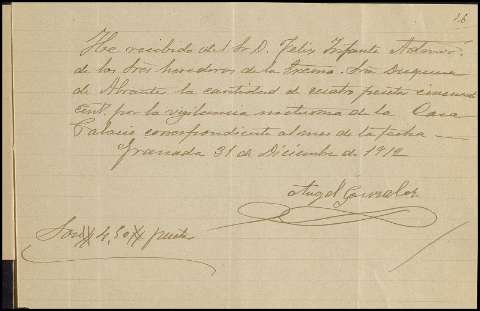 26
He recibido del Sr. D. Felix Infante Admor.
de los Sres herederos de la Excma. Sra Duquesa
de Abrantes la cantidad de cuatro pesetas cincuenta
cent. por la vigilancia nocturna de la Casa
Palacio correspondiente al mes de la fecha —
Granada 31 de Diciembre de 1912
Angel Gonzalez
Son # 4,50 # pesetas